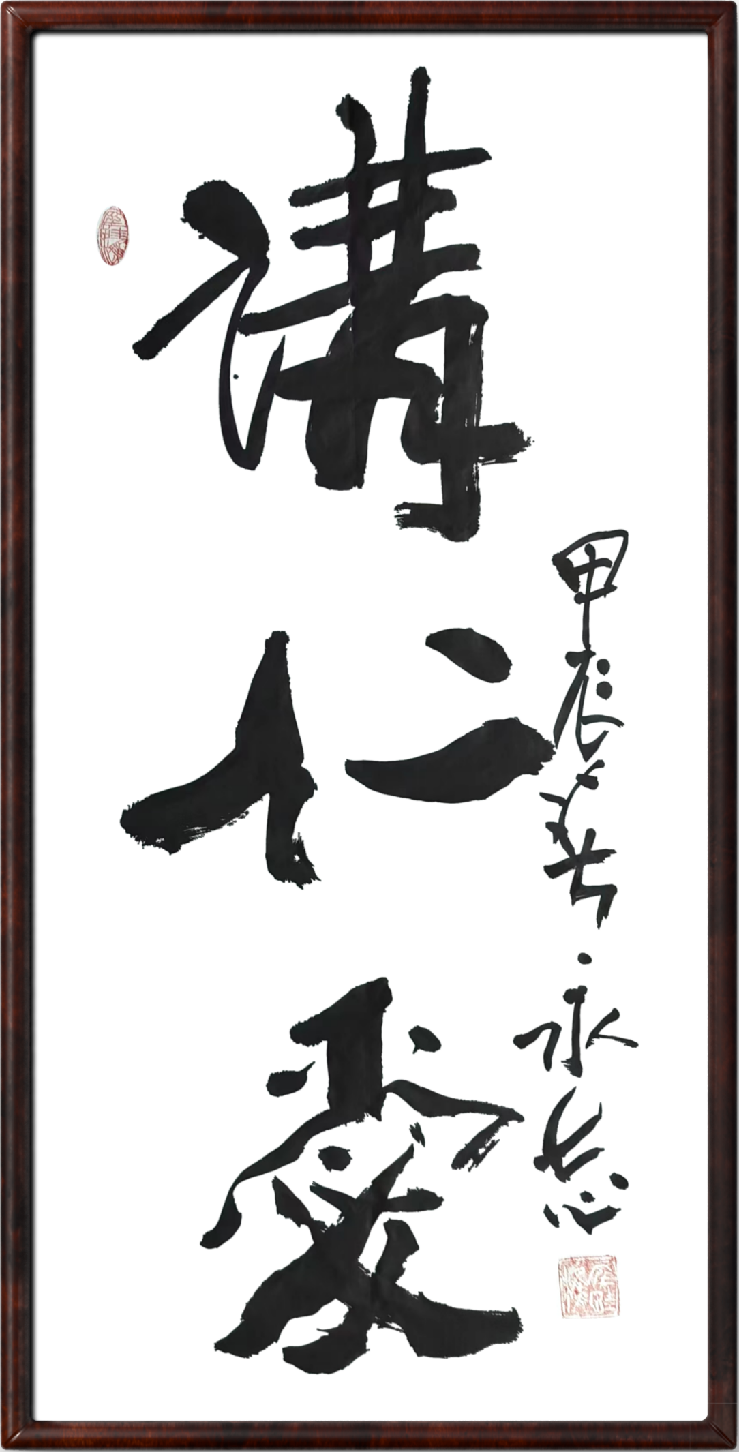 講仁愛
甲辰春永志